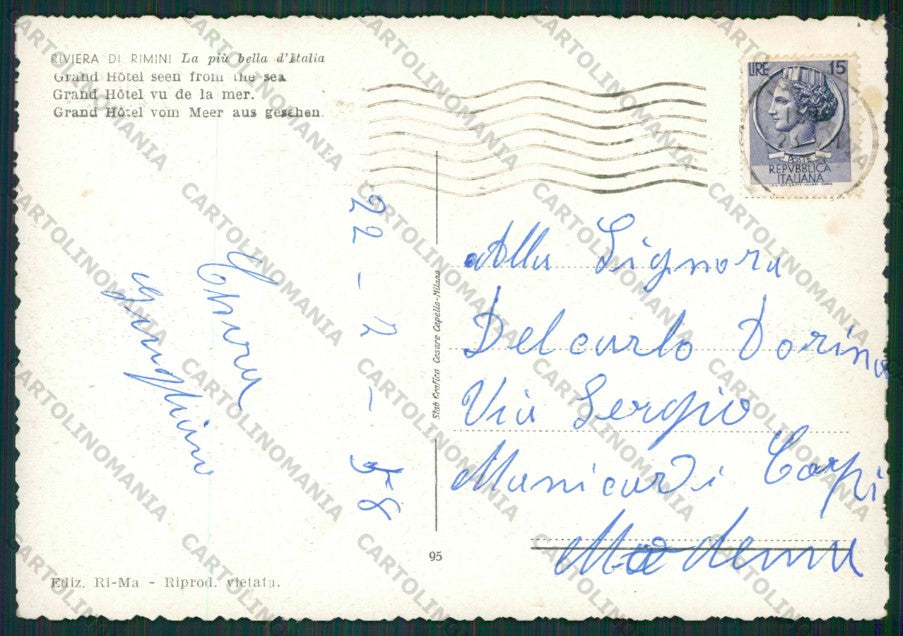 RIVIERA DI RIMINI La più bella d'Italia
Grand Hôtel seen from the sea
Grand Hôtel vu de la mer.
Grand Hôtel vom Meer aus gesehen.
LIRE 15
POSTE
REPVBBLICA
ITALIANA
Alla Signora
Delcarlo Dorina
Via Sergio
Manicardi Carpi
Modena
22-2-58
Stab Grafico Cesare Capello-Milano
95
Ediz. Ri-Ma - Riprod. vietata.
CARTOLINOMANIA